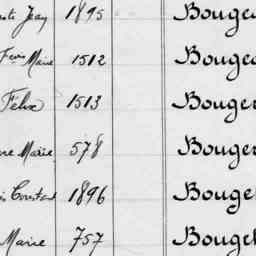 Jean 1895 Bouge
Fois Marie 1512 Bouge
Felix 1513 Bouge
Marie 578 Bouge
Constant 1896 Bouge
Marie 757 Bouge